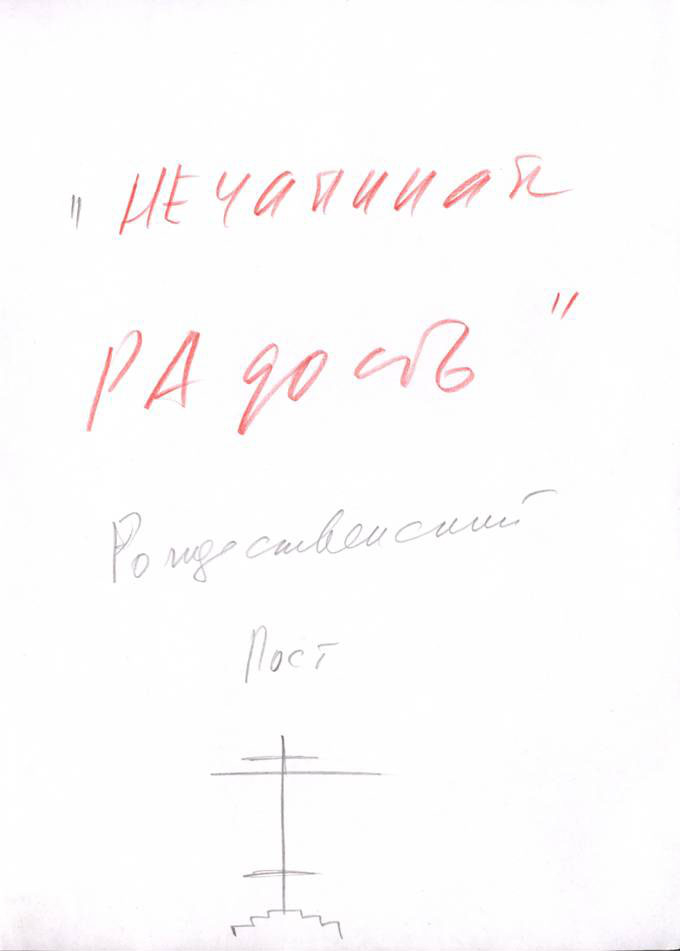 "НЕЧАЯННАЯ
РАДОСТЬ"
Рождественский
Пост